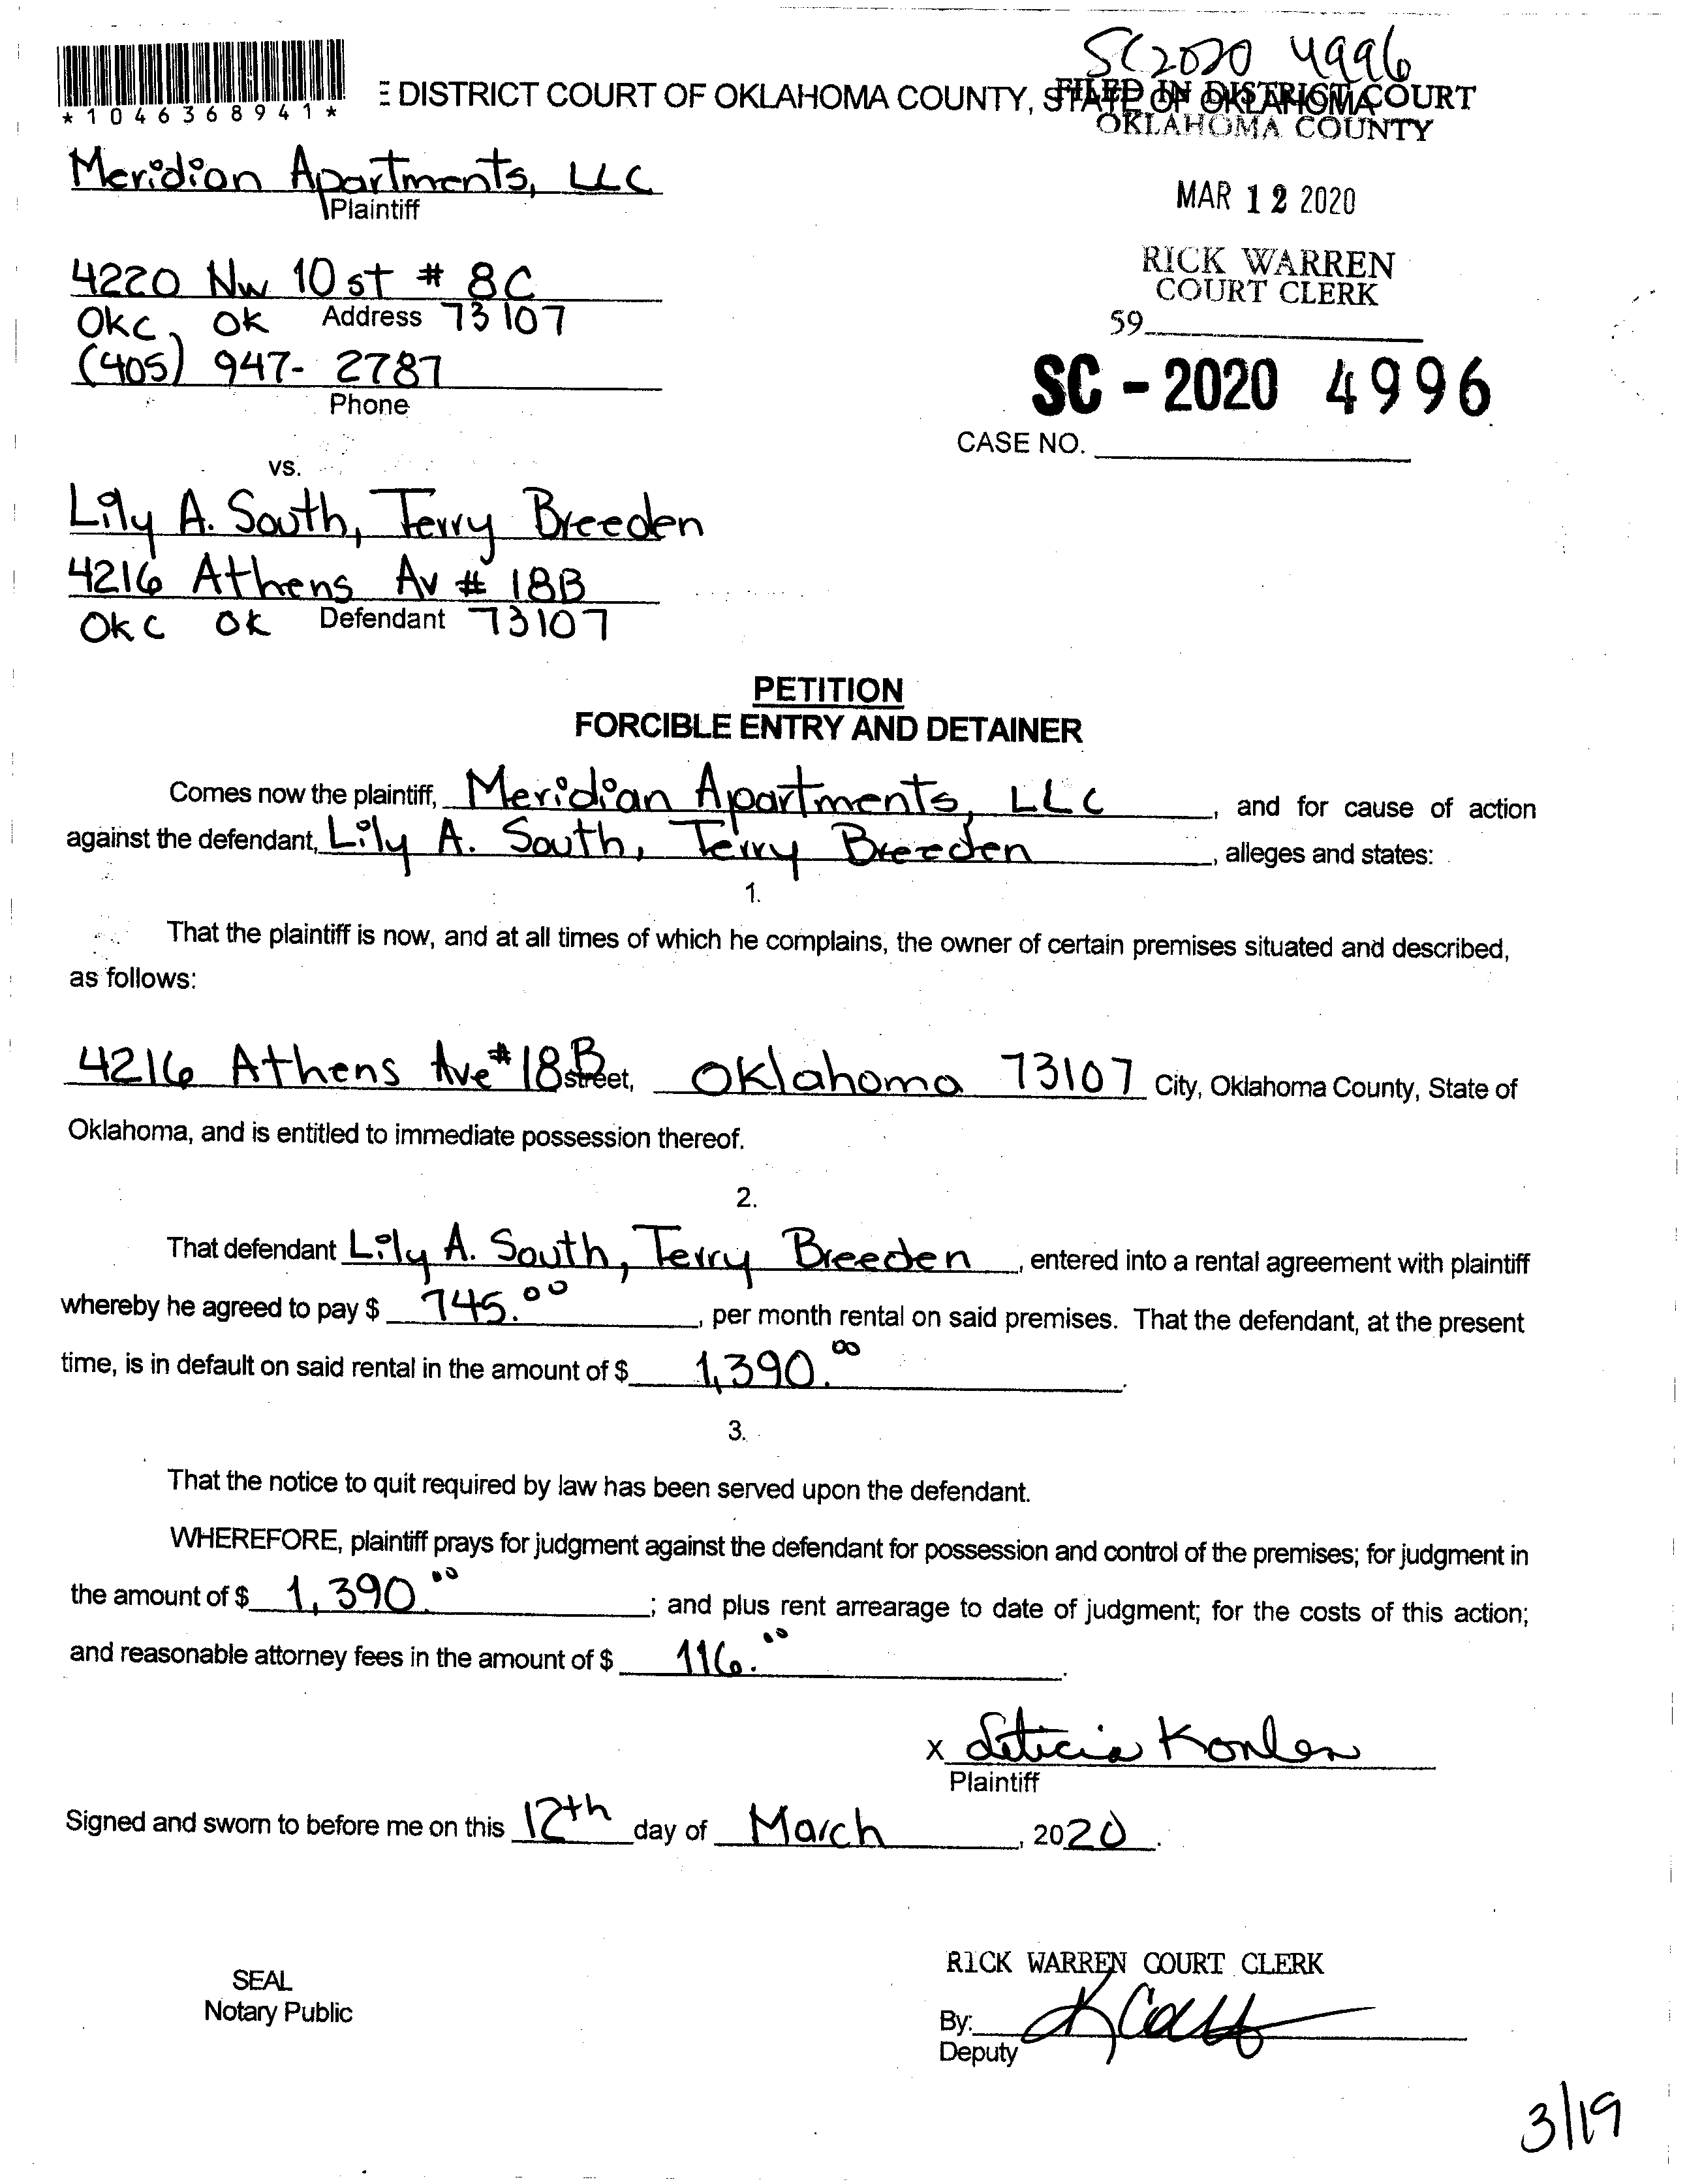 SC2020 4996
E DISTRICT COURT OF OKLAHOMA COUNTY, STATE OF OKLAHOMA
FILED IN DISTRICT COURT
OKLAHOMA COUNTY
*1046368941*
Meridian Apartments, LLC
Plaintiff
MAR 12 2020
RICK WARREN
COURT CLERK
4220 NW 10 st # 8C
OKC, OK Address 73107
59
(405) 947-2787
Phone
SC - 2020 4996
CASE NO.
vs.
Lily A. South, Terry Breeden
4216 Athens Av # 18B
OKC OK Defendant 73107
PETITION
FORCIBLE ENTRY AND DETAINER
Comes now the plaintiff, Meridian Apartments, LLC, and for cause of action
against the defendant, Lily A. South, Terry Breeden, alleges and states:
1.
That the plaintiff is now, and at all times of which he complains, the owner of certain premises situated and described,
as follows:
4216 Athens Ave #18B street, Oklahoma 73107 City, Oklahoma County, State of
Oklahoma, and is entitled to immediate possession thereof.
2.
That defendant Lily A. South, Terry Breeden, entered into a rental agreement with plaintiff
whereby he agreed to pay $ 745.00, per month rental on said premises. That the defendant, at the present
time, is in default on said rental in the amount of $ 1,390.00.
3.
That the notice to quit required by law has been served upon the defendant.
WHEREFORE, plaintiff prays for judgment against the defendant for possession and control of the premises; for judgment in
the amount of $ 1,390.00; and plus rent arrearage to date of judgment; for the costs of this action;
and reasonable attorney fees in the amount of $ 116.00.
x Leticia
Plaintiff
Signed and sworn to before me on this 12th day of March, 2020.
RICK WARREN COURT CLERK
SEAL
Notary Public
By:
Deputy
3/19